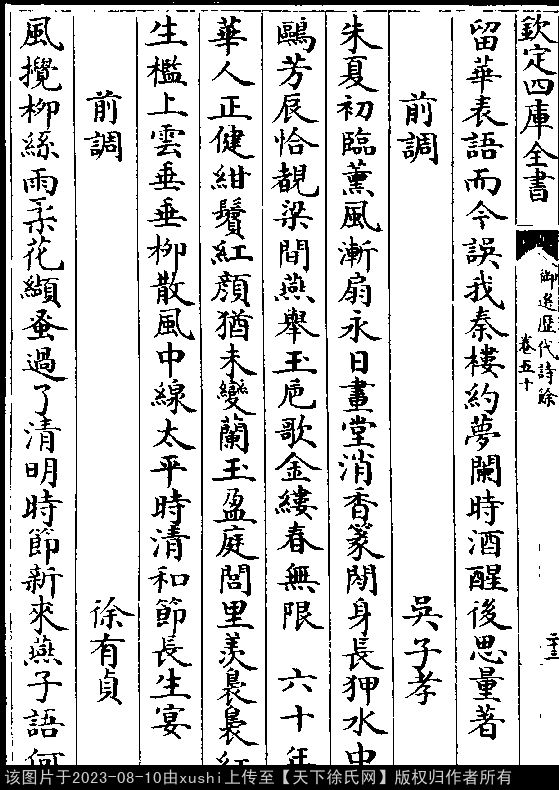 欽定四庫全書
御選歷代詩餘
卷五十
二十三
留華表語而今誤我秦樓約夢闌時酒醒後思量著
前調 吳子孝
朱夏初臨薰風漸扇永日畫堂消香篆閒身長狎水中
鷗芳辰恰覩梁間燕舉玉巵歌金縷春無限 六十年
華人正健紺鬢紅顏猶未變蘭玉盈庭閭里羨裊裊紅
生檻上雲垂垂柳散風中線太平時清和節長生宴
前調 徐有貞
風攪柳絲雨柔花纈蚤過了清明時節新來燕子語何
该图片于2023-08-10由xushi上传至【天下徐氏网】版权归作者所有